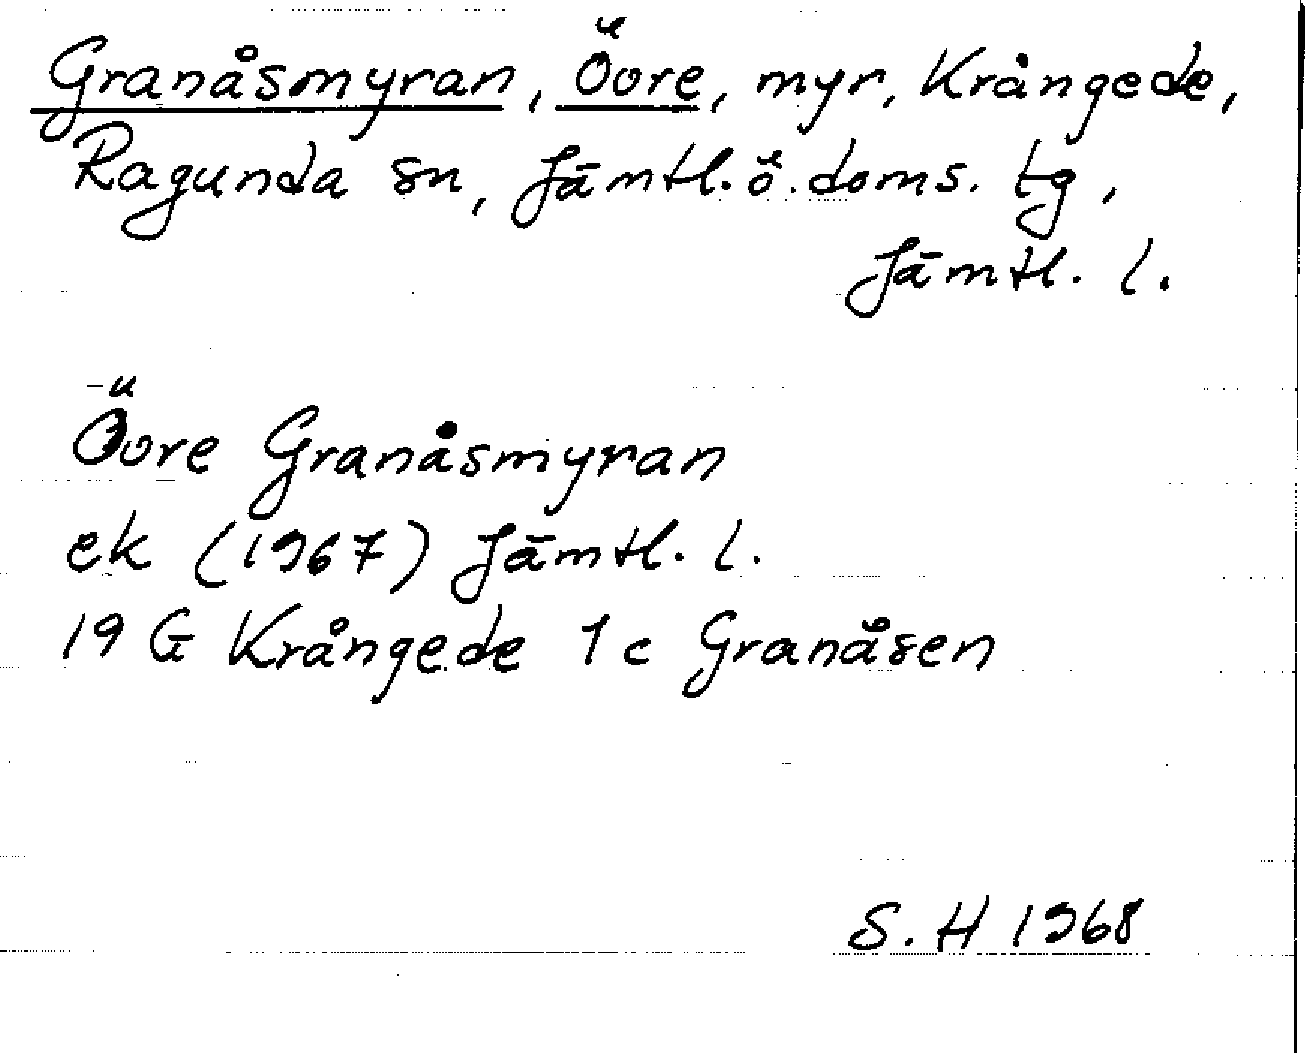 Granåsmyran, Övre, myr, Krångede,
Ragunda sn, Jämtl. ö. doms. tg,
Jämtl. l.
Övre Granåsmyran
ek (1967) Jämtl. l.
19 G Krångede 1 c Granåsen
S. H 1968